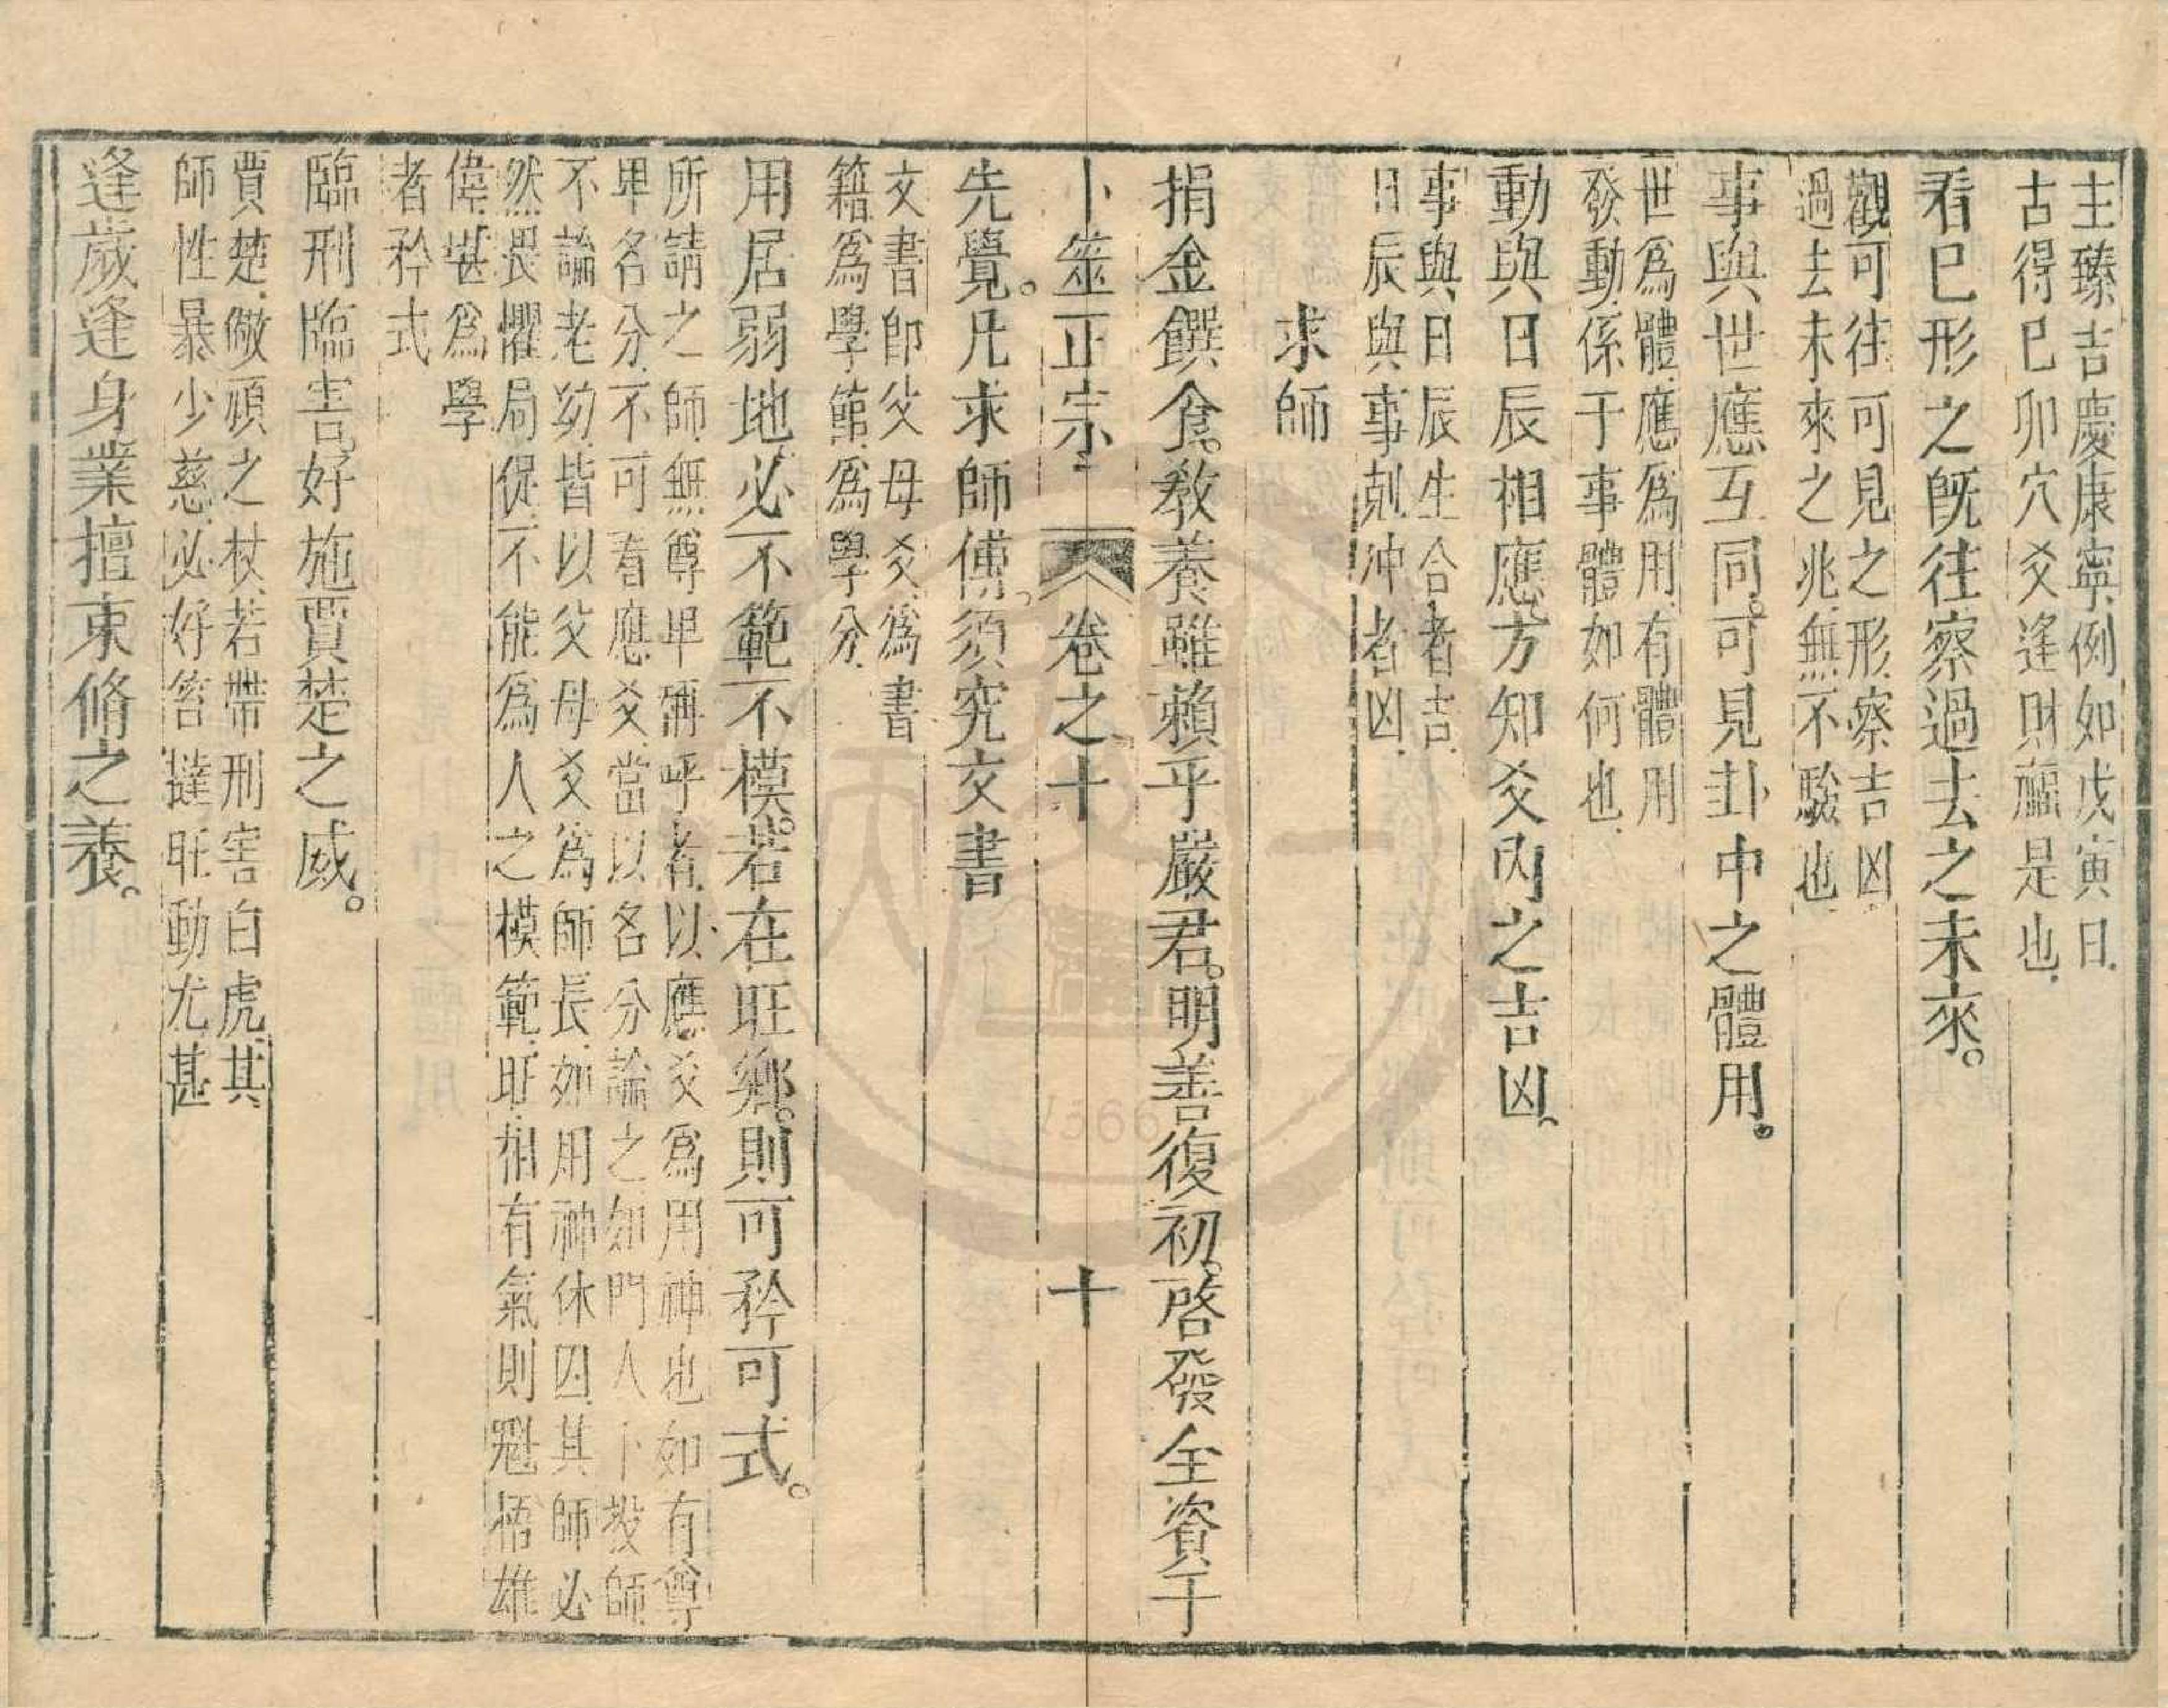 主臻吉慶康寧例如戊寅日
古得巳卯穴爻逢財福是也
看巳形之旣往察過去之未來。
觀可往可見之形察吉凶
過去未來之兆無不驗也
事與世應互同可見卦中之體用。
世爲體應爲用有體用
發動係于事體如何也
動與日辰相應方知爻內之吉凶。
事與日辰生合者吉
日辰與事剋冲者凶
求師
捐金饌食。敎養雖賴乎嚴君。明善復初。啓發全資于
卜筮正宗 卷之十 十
先覺。凡求師傅。須究文書
文書卽父母爻爲書
籍爲學館爲學分
用居弱地必不範不模。若在旺鄉。則可矜可式。
所請之師無尊卑稱呼者以應爻爲用神也如有尊
卑名分不可看應爻當以名分論之如門人卜投師
不論老幼皆以父母爻爲師長如用神休囚其師必
然畏懼局促不能爲人之模範旺相有氣則魁梧雄
偉堪爲學
者矜式
臨刑臨害。好施賈楚之威。
賈楚儆頑之杖若帶刑害白虎其
師性暴少慈必好笞撻旺動尤甚
逢歲逢身業擅束脩之養。